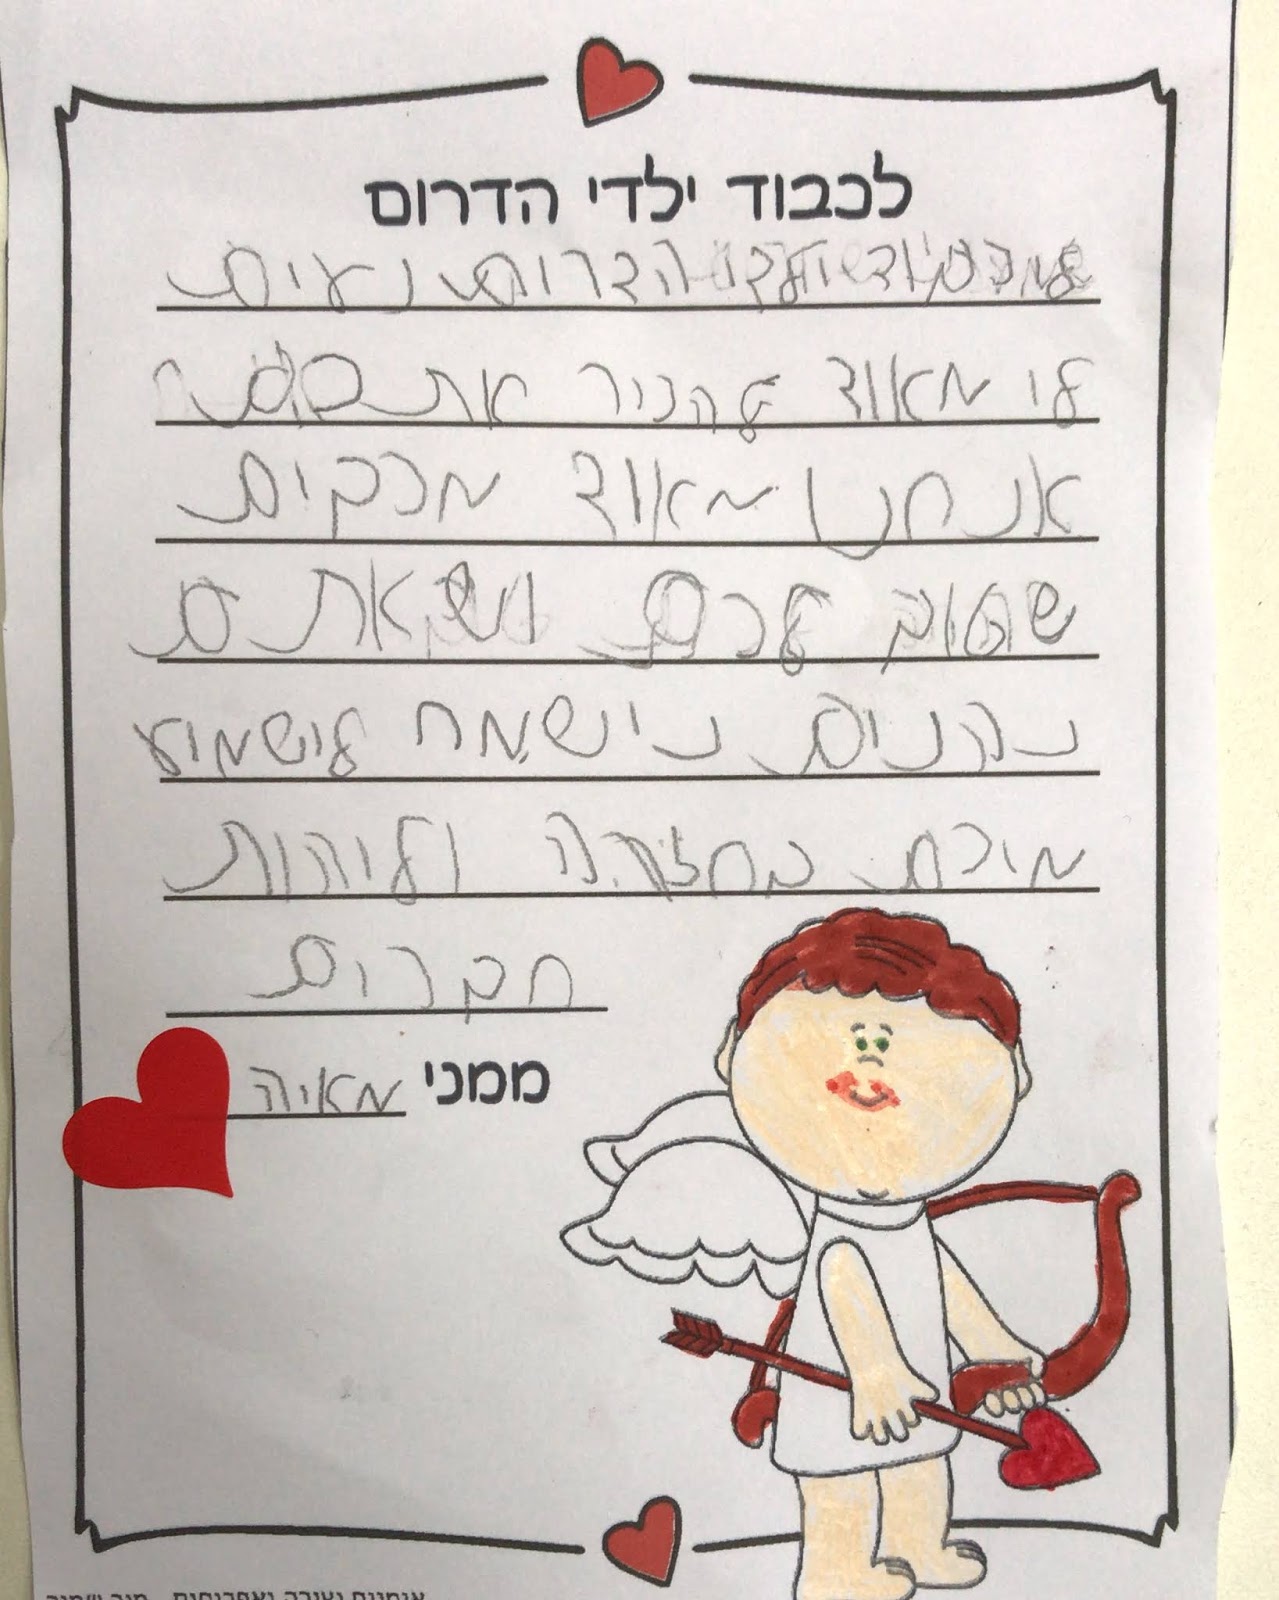 לכבוד ילדי הדרום
הדרום נעים
לי מאוד להכיר את
אנחנו מאוד מכקים
שטוב לכם ושאתם
נהנים נישמח לישמוע
מיכם בחזרה וליהות
חברים
ממני מאיה